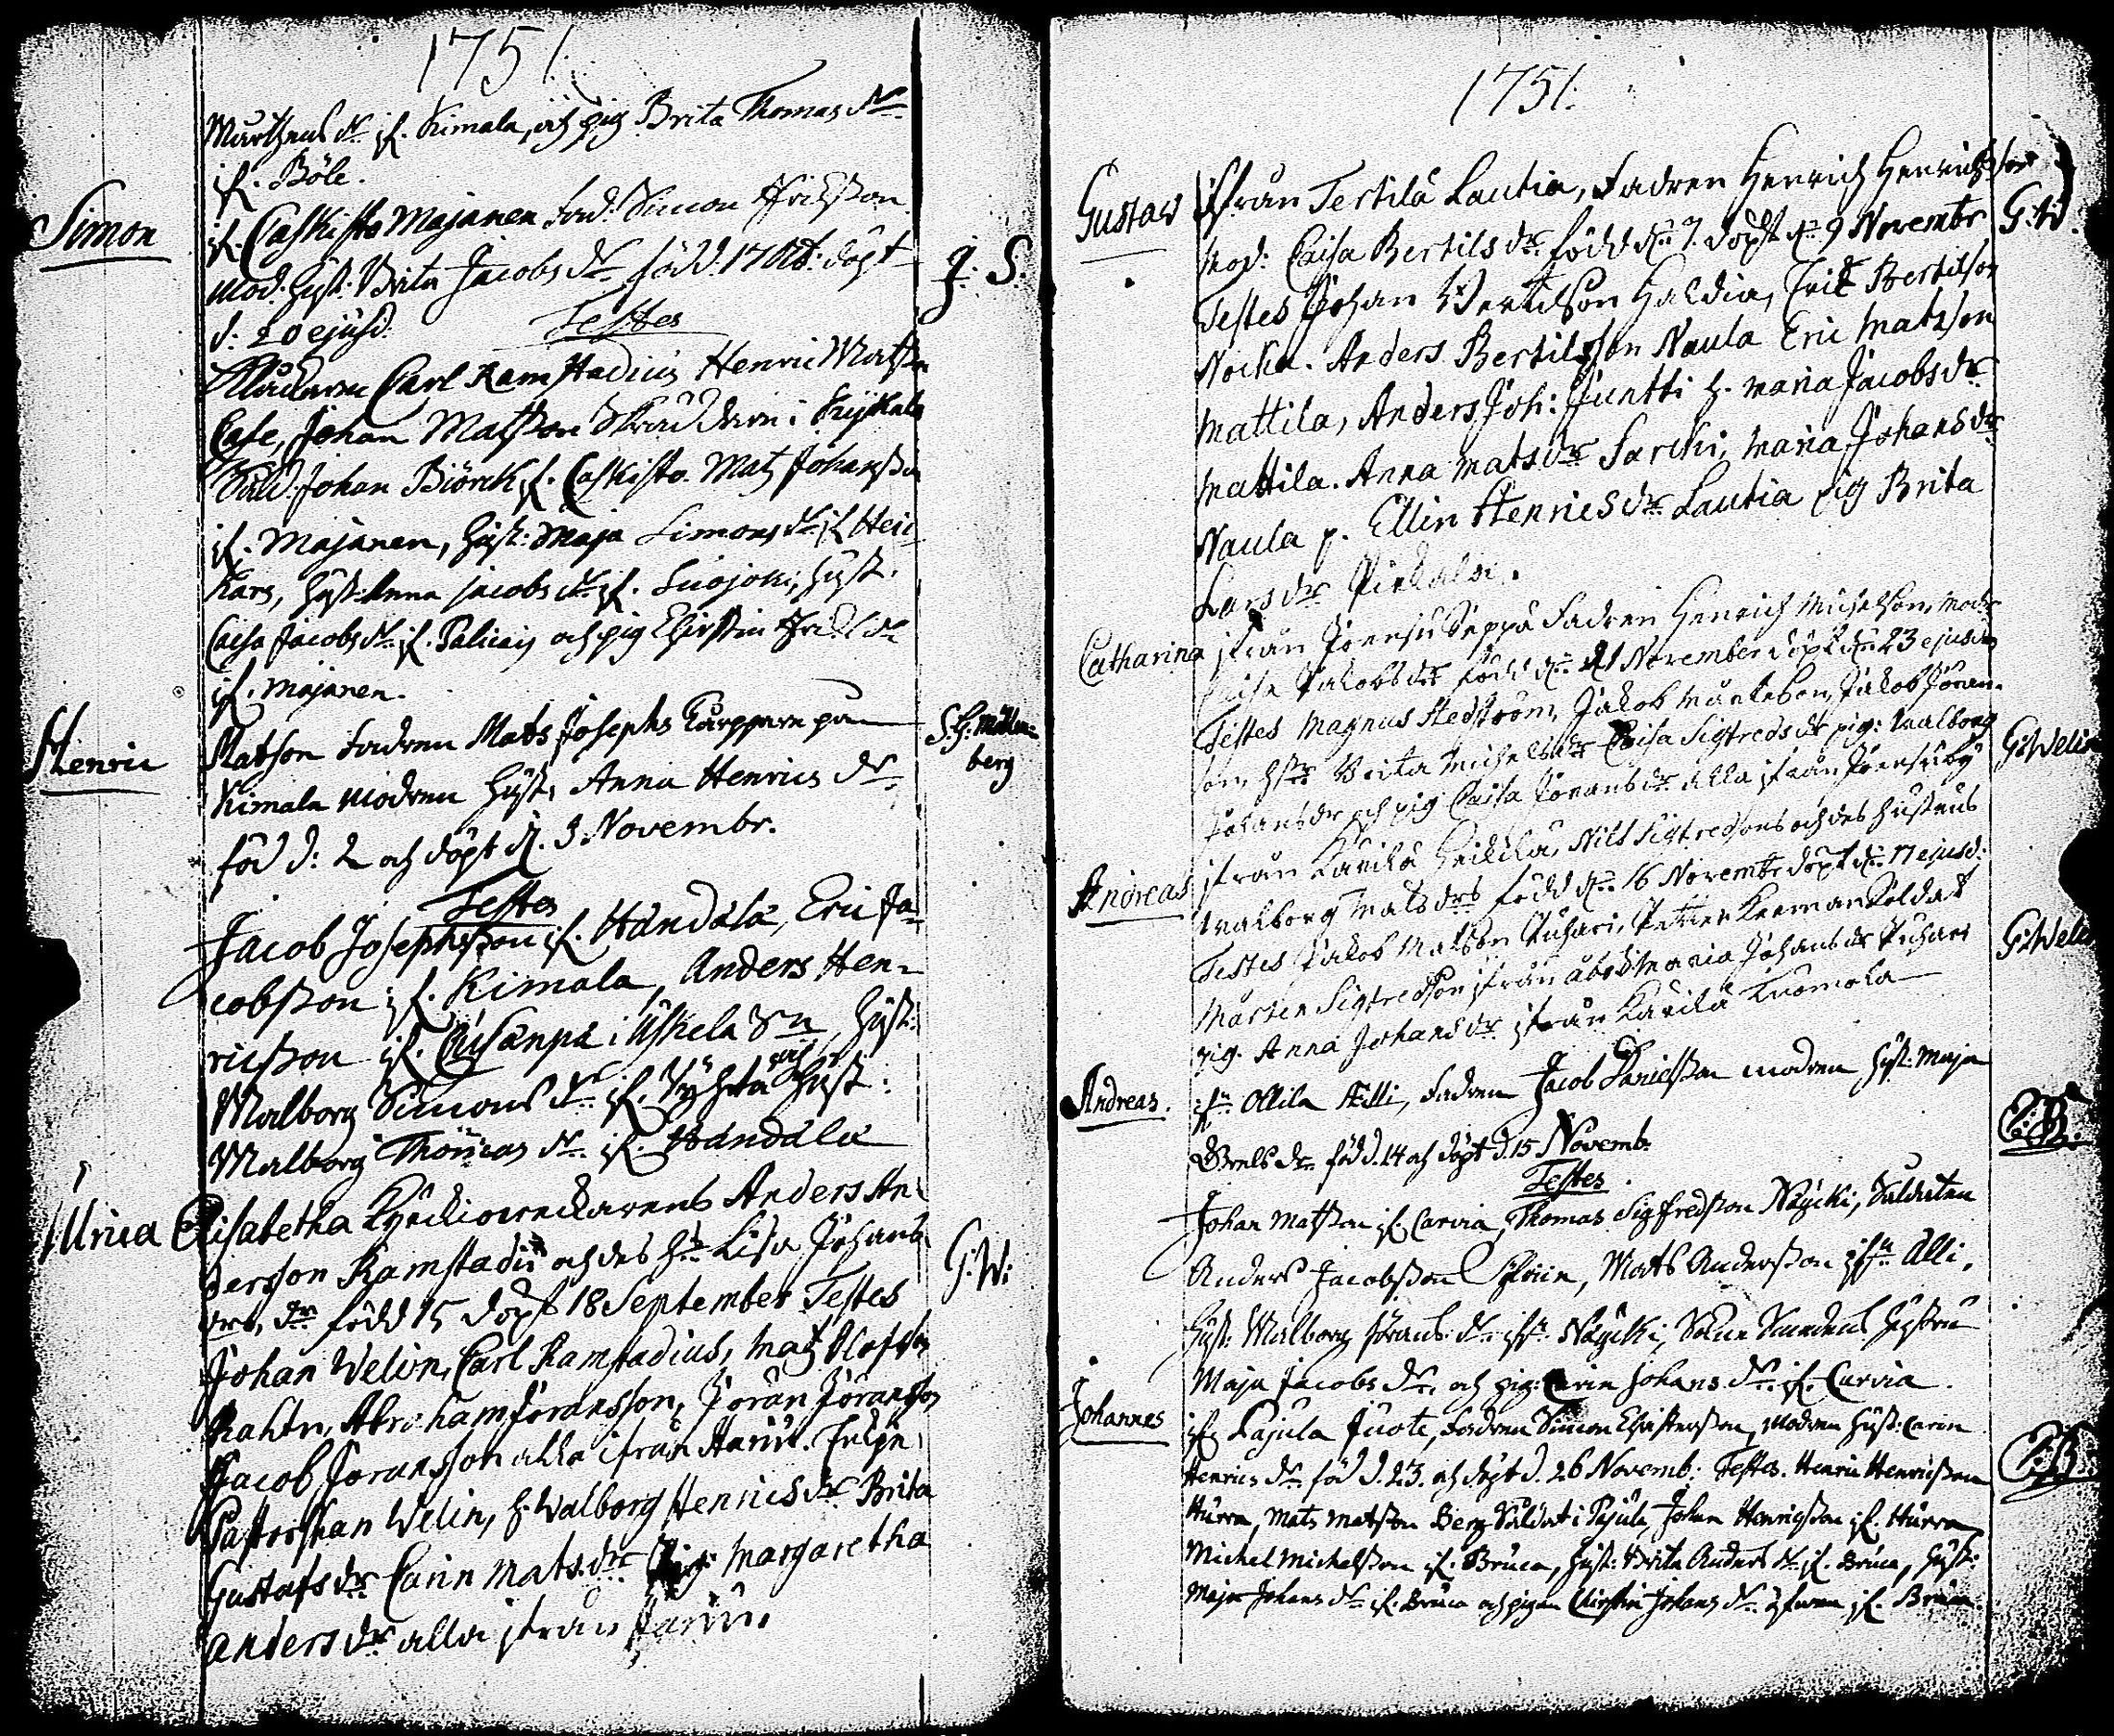 1751.
Mårthens dr. if. Kimala, och pig Brita Thomas dr.
if. Böle.
Simon
if. Caskisto Majanen Fad: Simon Erichsson
Mod. hust. Brita Jacobs dr. född. 17 Octb: döpt
J: S.
d: 20 ejusd.
Testes
Carl Ramstadius Henric Matsson
Case, Johan Matsson i
Sold. Johan Biörck if. Caskisto. Mats Johansson
if. Majanen, hust: Maja Simons dr. if Hei-
kars, hust: Anna Jacobs dr. if. Suojoki, hust.
Caisa Jacobs dr. if. och pig Chirstin
if. Majanen.
Henric
Matson Fadren Mats Josephs på
S. H: Möllen-
berg
Kimala Modren hust. Anna Henrics dr.
föd d: 2 och döpt d. 3. Novembr.
Testes
Jacob Josephsson if. Händälä, Eric Ja-
cobsson if. Kimala, Anders Hen-
ricsson if. i Uskela Sn, hust:
Walborg Simons dr. if. och hust:
Walborg Thomas dr. if. Händälä
Ulrica Elisabetha Anders An-
dersson Ramstadii och des h. Lisa Johans
G: W:
drs, dr. född 15 döpt 18 September Testes
Johan Welin, Carl Ramstadius, Mats Olofson
Abraham Joransson, Joran Joransson
Jacob Joransson alla ifrån
Pastorskan Welin, h. Walborg Henrics dr Brita
Gustafs dr Carin Mats dr. Pig: Margaretha
Anders dr alla ifrån
1751.
Gustav ifrån Tertilä Lautia, Fadren Henrich Henrichsson
G: W.
Mod: Caisa Bertils dr. född d. 7. döpt d. 9 Novembr
Testes Johan Bertilson Haldia, Erik Bertilson
Nocka. Anders Bertilsson Naula Eric Matsson
Mattila, Anders Joh: Juntti h. Maria Jacobs dr
Mattila. Anna Mats dr Sarcki, Maria Johans dr
Naula p. Ellin Henrics dr Lautia pig Brita
Lars dr
Catharina ifrån Joensu Seppä Fadren Henrich Michelson, Modr
Caisa Jakobs dr född d. 21 November döpt d. 23 ejusdm
Testes Magnus Hedström, Jakob Mårtenson, Jakob Jöran-
son, hstr Brita Michels dr Caisa Sigfreds dr pig: Walborg
G: Welin
Johans dr och pig Caisa Jörans dr alla ifrån Joensu by
Andreas ifrån Karilä Nils Sigfredsons och des hustrus
Walborg Mats drs född d. 16 Novembr döpt d. 17 ejusd:
G: Welin
Testes Jakob Matson Juhari, Petter Soldat
Mårten Sigfredson ifrån Åbo Maria Johans dr Juhari
pig. Anna Johans dr ifrån Karilä Tuomola
Andreas.
ifn Ollila Alli, Fadren Jacob Danielsson modren hust. Maja
föd d. 14 och döpt d. 15 Novemb.
Testes
Johan Matsson if. Carvia, Thomas Sigfredsson Näycki, Soldaten
Anders Jacobsson Mats Andersson ifn Alli,
hust. Walborg dr. ifn Näycki, hustru
Maja Jacobs dr. och pig: Carin Johans dr. if. Carvia.
Johannes
if. Pajula Juote, Fadren Simon Christersson, Modren hust: Carin
Henrics dr född d. 23. och döpt d. 26 Novemb. Testes. Henric Henricsson
Hurra, Mats Matsson Berg Soldat i Pajula, Johan Henricsson if. Hurra
Michel Michelsson if. Bruca, hust: Brita Anders dr if. Bruca, hust:
Maja Johans dr if. Bruca och pigan Chirstin Johans dr. äfwen if. Bruca.